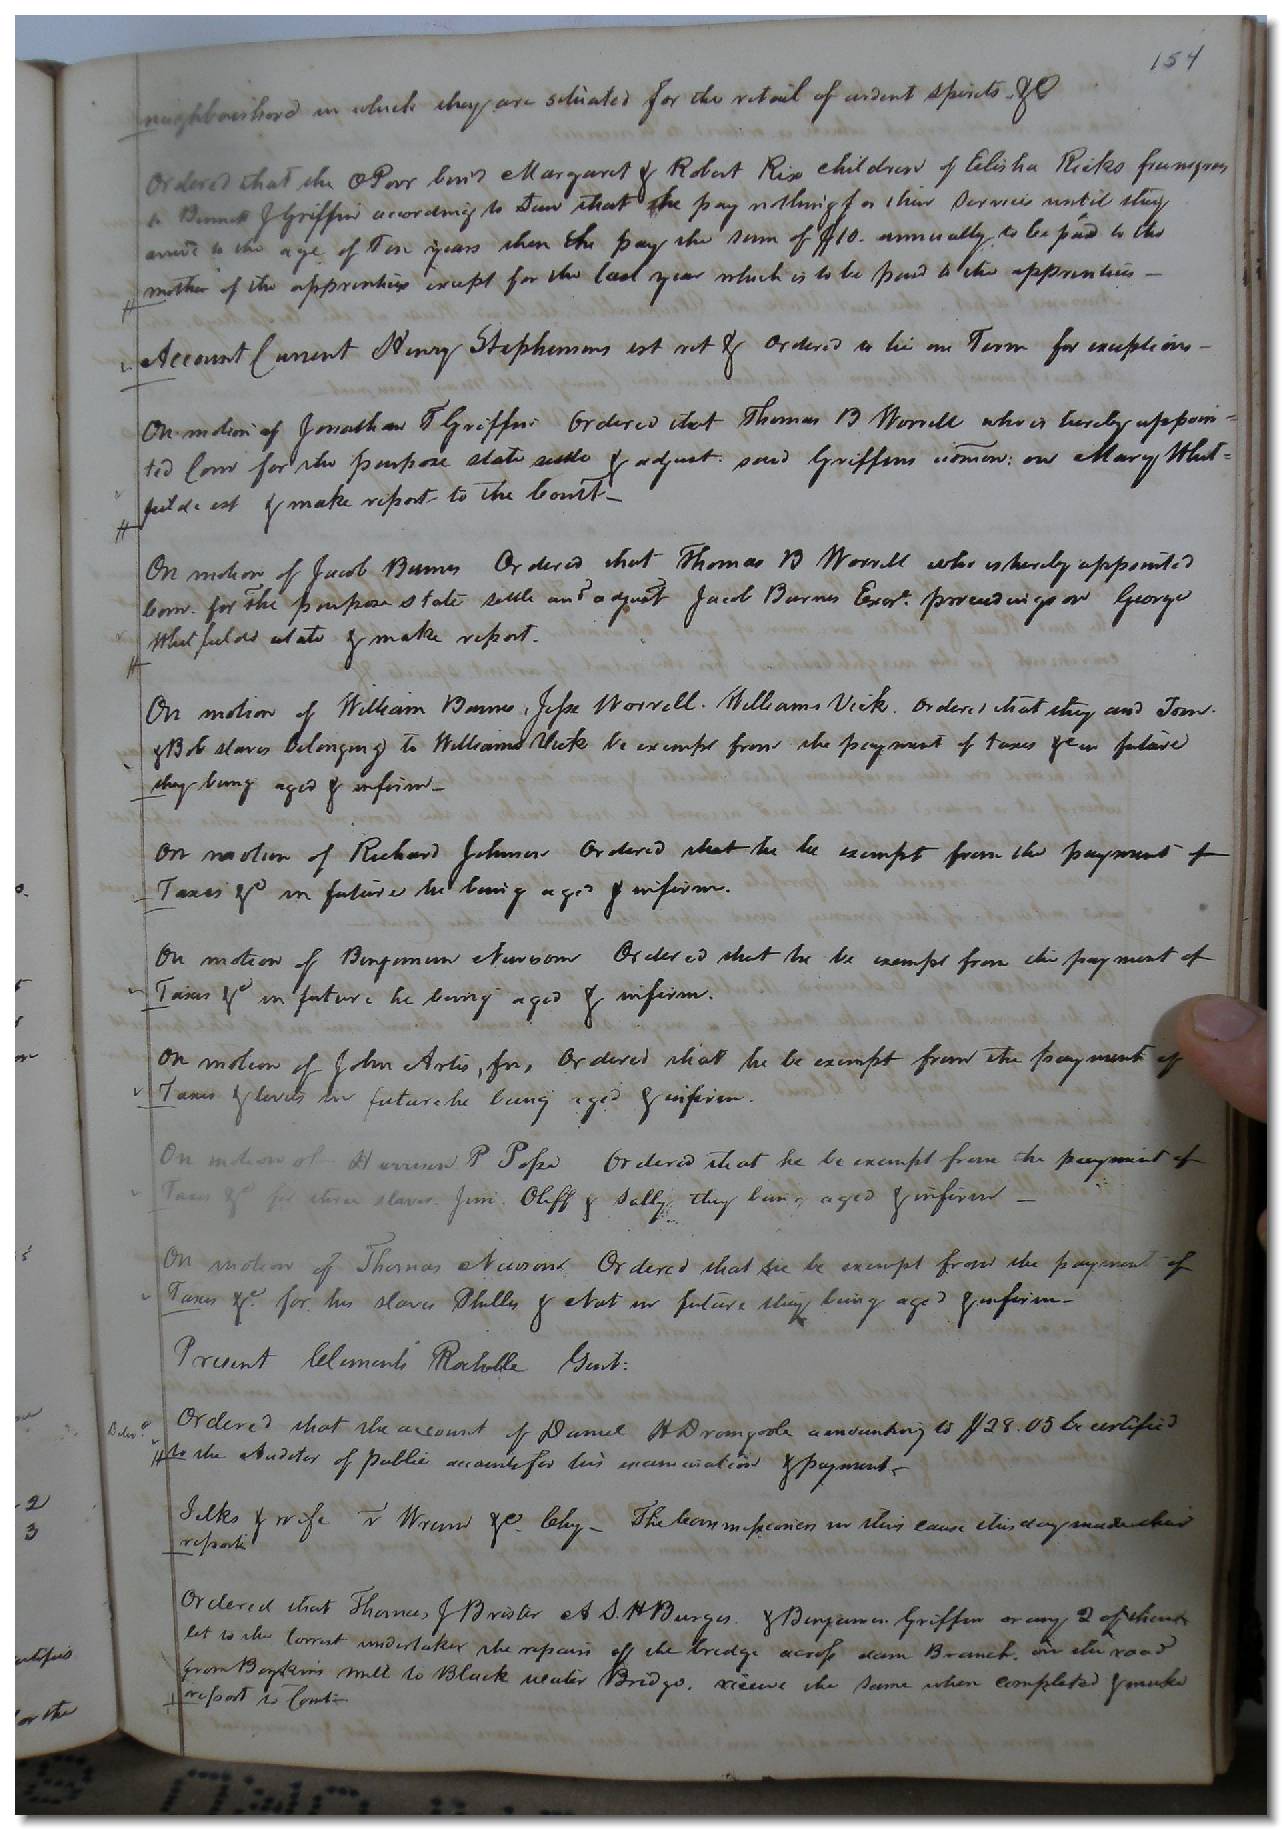 154
neighbourhood in which they are situated for the retail of ardent spirits &C
Ordered that the OPoor bind Margaret & Robert Rix children of Elisha Ricks
to Bennett J Griffin according to Law that he pay nothing for their services until they
arrive to the age of Ten years then he pay the sum of $10. annually to be paid to the
mother of the apprentices except for the last year which is to be paid to the apprentices —
Account Current Henry Stephensons est ret & Ordered to lie one Term for exceptions —
On motion of Jonathan T Griffin Ordered that Thomas B Worrell who is hereby appoin=
ted Com for the purpose state settle & adjust said Griffins on Mary Whit=
fields est & make report to the Court —
On motion of Jacob Barnes Ordered that Thomas B Worrell who is hereby appointed
Com. for the purpose state settle and adjust Jacob Barnes Exor. proceedings on George
Whitfields estate & make report.
On motion of William Barnes, Jesse Worrell. Williams Vick. Ordered that they and Tom.
& Bob slaves belonging to Williams Vick be exempt from the payment of taxes &c in future
they being aged & infirm —
On motion of Richard Johnson Ordered that he be exempt from the payment of
Taxes &c in future he being aged & infirm.
On motion of Benjamin Newsom Ordered that he be exempt from the payment of
Taxes &c in future he being aged & infirm.
On motion of John Artis, Ordered that he be exempt from the payment of
Taxes & levies in future he being aged & infirm.
On motion of Harrison P Pope Ordered that he be exempt from the payment of
Taxes &c for three slaves. Jim. Oliff & Sally they being aged & infirm —
On motion of Thomas Newsom Ordered that he be exempt from the payment of
Taxes &c. for his slaves Phillis & Nat in future they being aged & infirm —
Present Clements Rochelle Gent:
Ordered that the account of Daniel H Dromgoole amounting to $28.05 be certified
to the Auditor of public accounts for his examination & payment —
Silks & wife vs Wrenn &c. Chy — The Commissioners in this cause this day made their
report
Ordered that Thomas J Brister A S. H Burges. & Benjamin Griffin or any 2 of them
let to the lowest undertaker the repairs of the bridge across dam Branch. on the road
from Boykins mill to Black water Bridge. receive the same when completed & make
report to Court —
2
3
or the